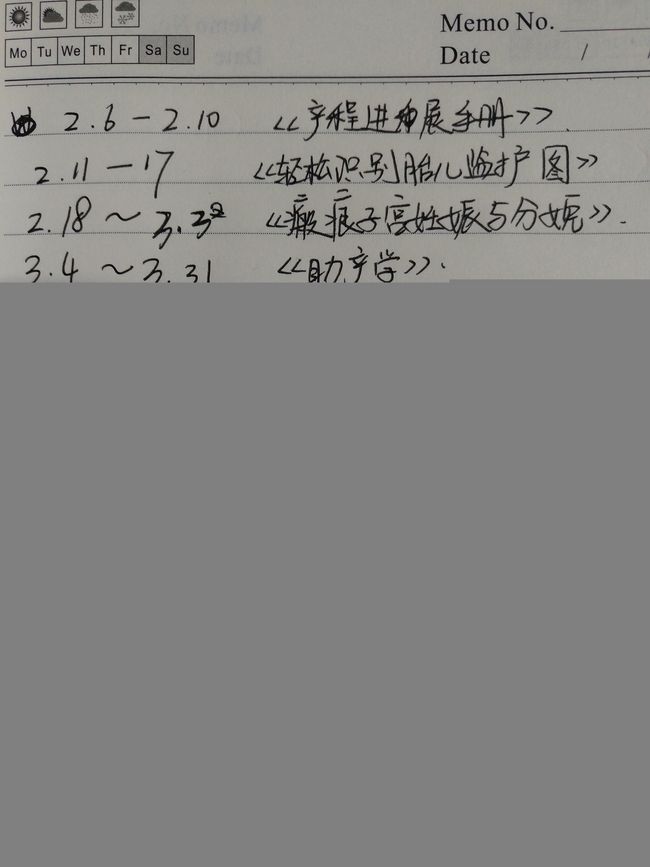 Memo No.
Mo Tu We Th Fr Sa Su
Date / /
2.6 — 2.10 <<产程进展手册>>.
2.11 — 17 <<轻松识别胎儿监护图>>
2.18 ~ 3.3 <<瘢痕子宫妊娠与分娩>>.
3.4 ~ 3.31 <<助产学>>.